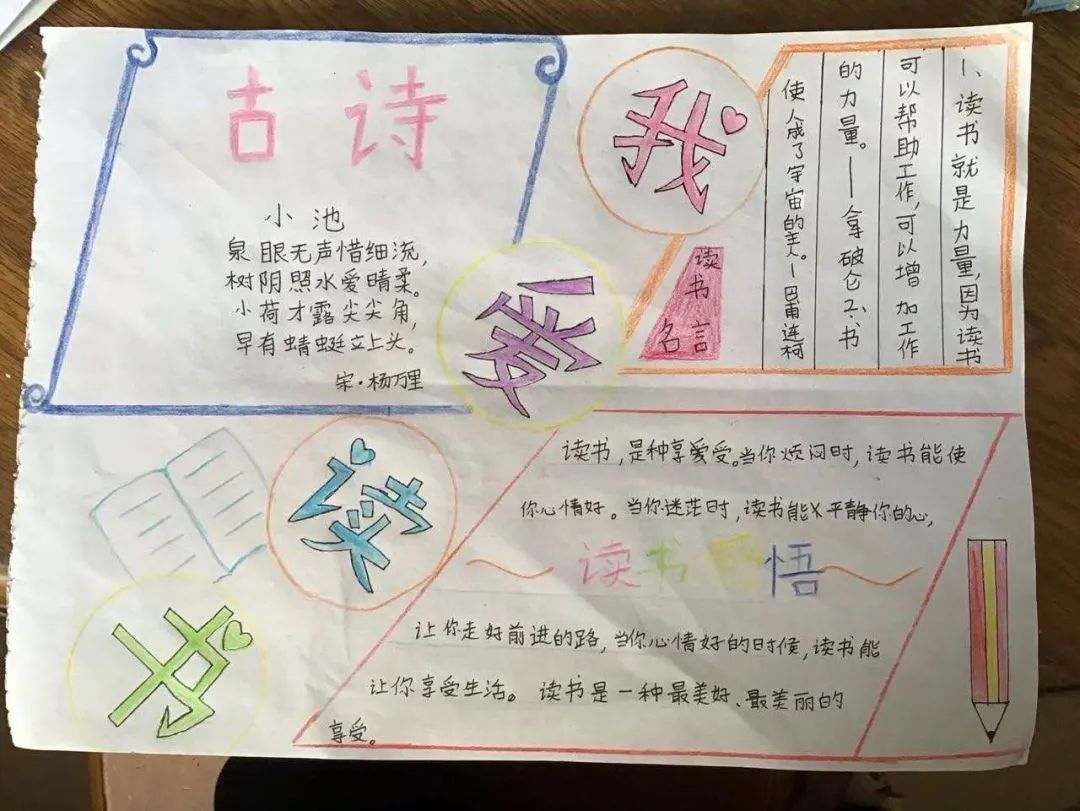 古诗
小池
泉眼无声惜细流,
树阴照水爱晴柔。
小荷才露尖尖角,
早有蜻蜓立上头。
宋·杨万里
我
爱
读
书
读书
名言
1、读书就是力量,因为读书
可以帮助工作,可以增加工作
的力量。——拿破仑2、书
使人成了宇宙的主人。—巴甫连柯
读书,是种享爱受。当你烦闷时,读书能使
你心情好。当你迷茫时,读书能平静你的心,
读书感悟
让你走好前进的路,当你心情好的时候,读书能
让你享受生活。读书是一种最美好、最美丽的
享受。